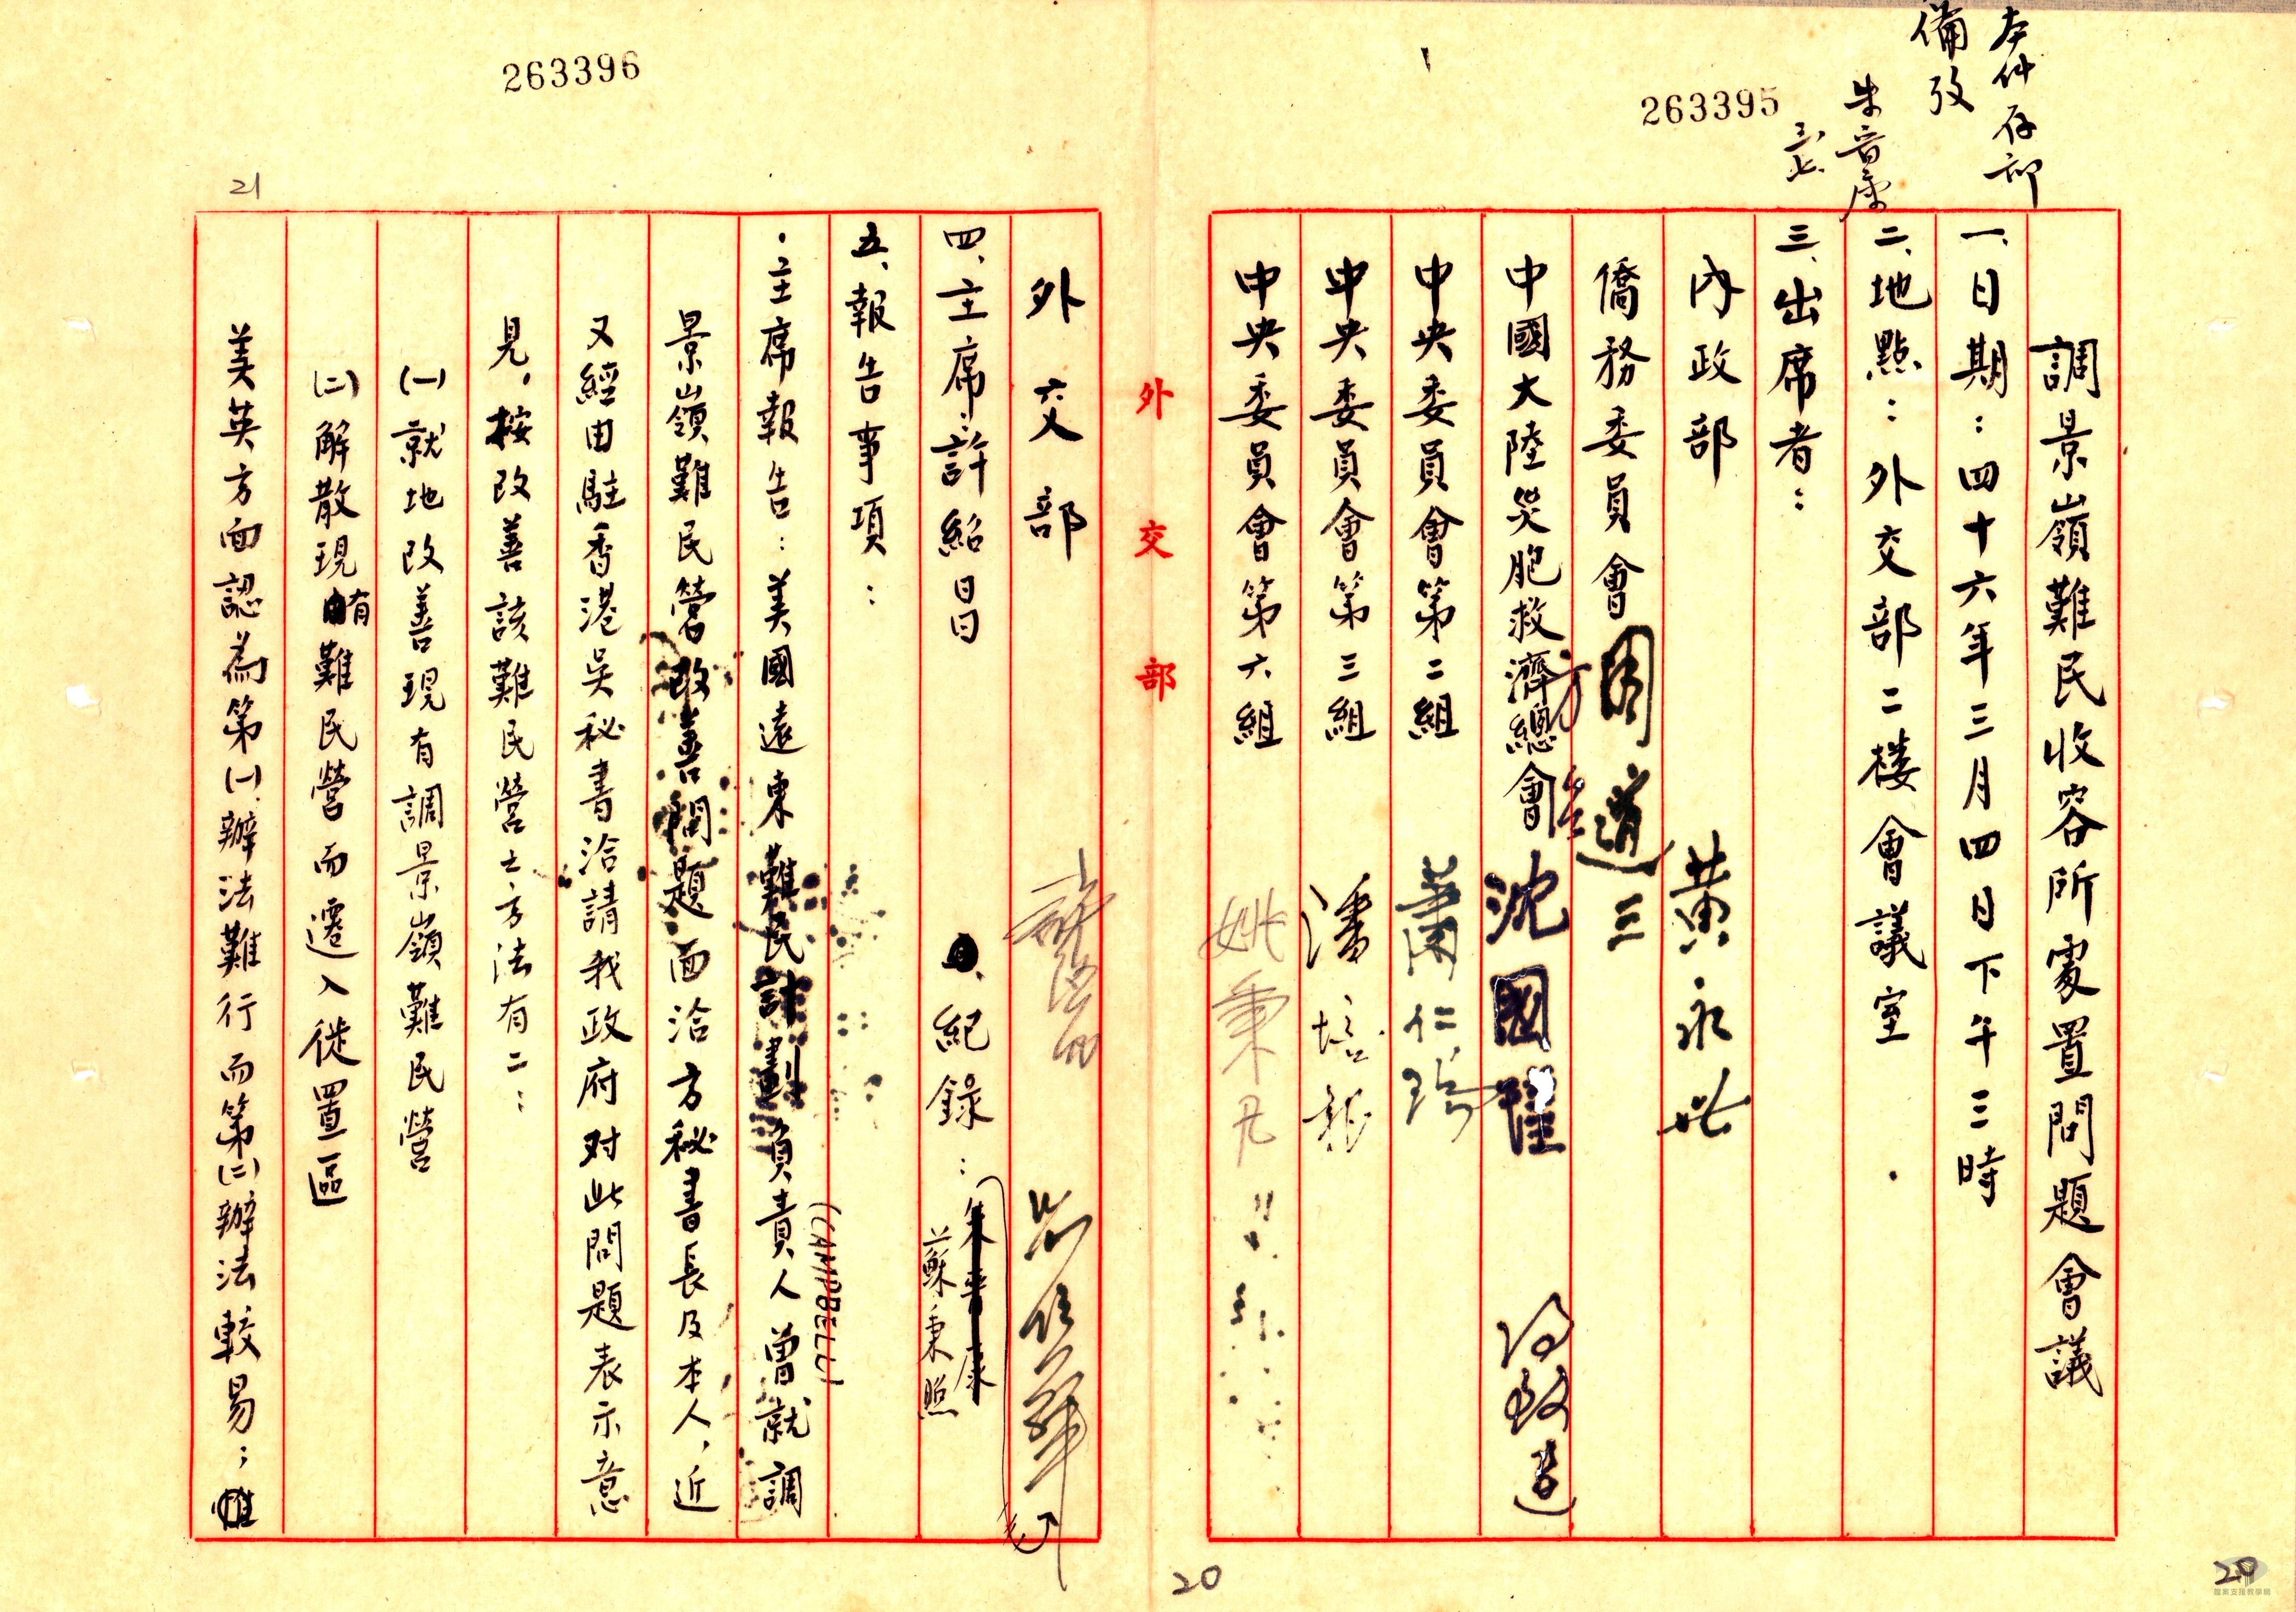 本件存部
備攷
朱晋康
三、七
263395
調景嶺難民收容所處置問題會議
一、日期：四十六年三月四日下午三時
二、地點：外交部二楼會議室
三、出席者：
內政部 黃永世
僑務委員會 周道三
中國大陸災胞救濟總會 方 沈國瑾
中央委員會第二組 蕭仁瑞
中央委員會第三組 潘培
中央委員會第六組 姚秉凡
20
外交部
263396
外交部
四、主席：許紹昌 紀錄：朱晋康
蘇秉照
五、報告事項：
主席報告：美國遠東難民計劃負責人曾就調
(CAMPBELL)
景嶺難民營改善問題面洽方秘書長及本人，近
又經由駐香港吴秘書洽請我政府对此問題表示意
見，按改善該難民營之方法有二：
(一)就地改善現有調景嶺難民營
(二)解散現有難民營而遷入徙置區
美英方面認為第(一)辦法難行而第(二)辦法較易；惟
21
20